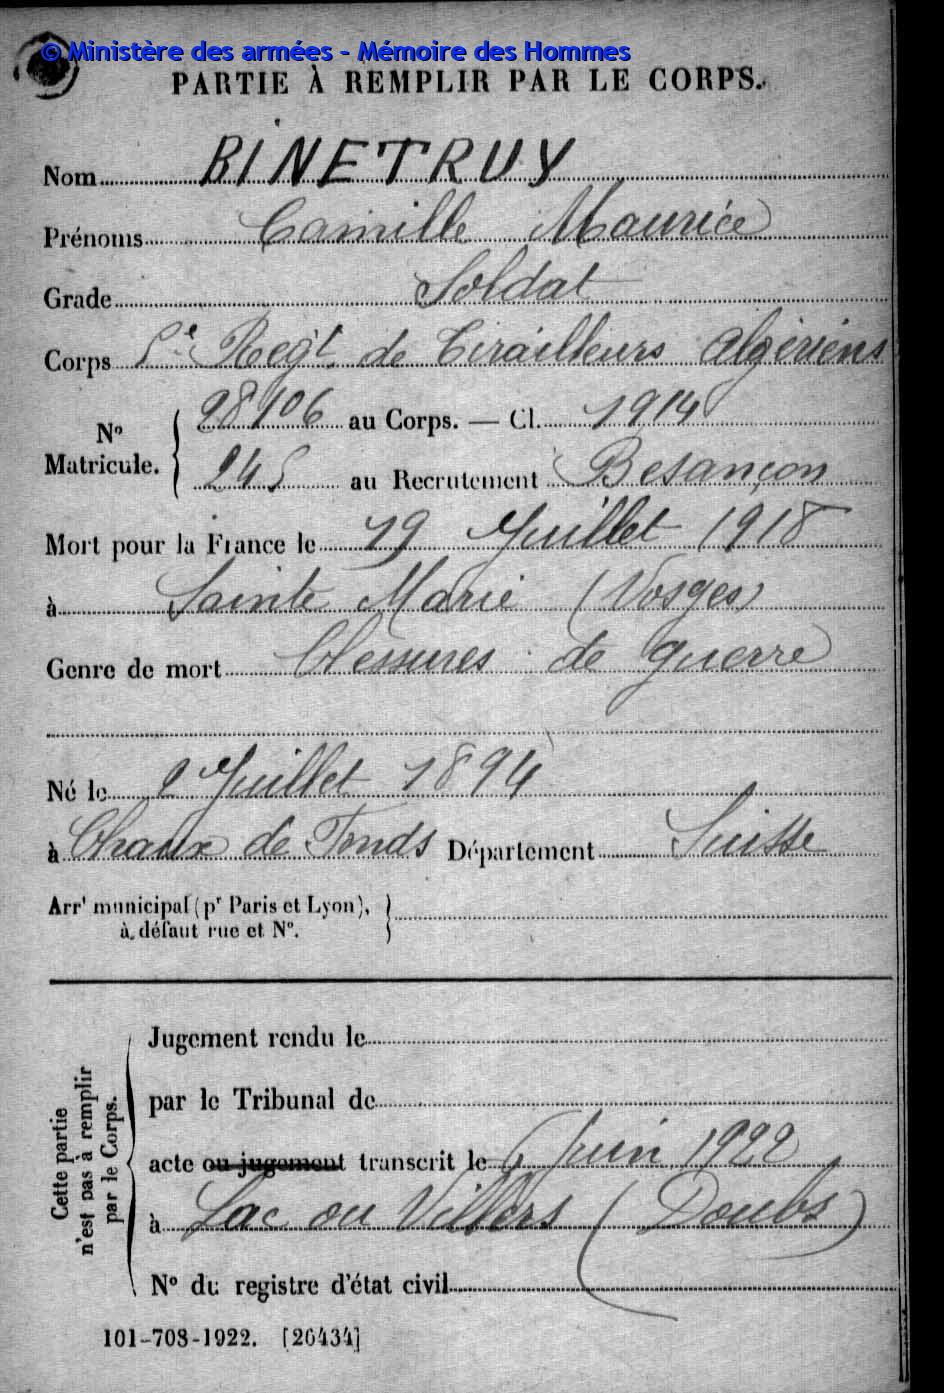 © Ministère des armées - Mémoire des Hommes
PARTIE À REMPLIR PAR LE CORPS.
Nom BINETRUY
Prénoms Camille Maurice
Grade Soldat
Corps Regt de Tirailleurs Algériens
No Matricule. 28106 au Corps. — Cl. 1914
245 au Recrutement Besançon
Mort pour la France le 19 Juillet 1918
à Sainte Marie (Vosges)
Genre de mort blessures de guerre
Né le 2 Juillet 1894
à Chaux de Fonds Département Suisse
Arrt municipal (pr Paris et Lyon),
à défaut rue et No.
Cette partie n'est pas à remplir par le Corps.
Jugement rendu le
par le Tribunal de
acte ou jugement transcrit le Juin 1922
à Lac ou Villers (Doubs)
No du registre d'état civil
101-708-1922. [26434]